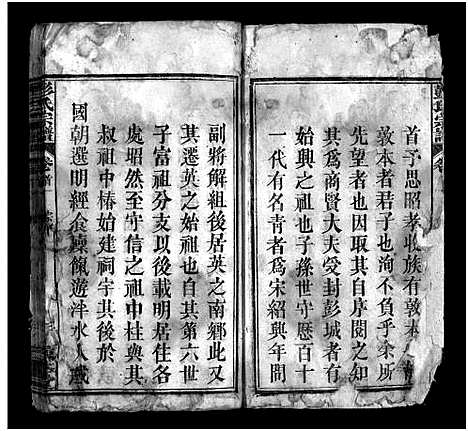 首予思昭孝收族有敦本
敦本者君子也洵不負乎余所
先望者也因取其自序閱之知
其爲商賢大夫受封彭城者有
始興之祖也子孫世守歷百十
一代有名青者爲宋紹興年間
彭氏宗譜 卷首
副將解組後居英之南鄉此又
其遷英之始祖也自其第六世
子富祖分支以後載明居住各
處昭然至守信之祖中柱與其
叔祖中椿始建祠宇其後於
國朝選明經食廩餼遊泮水人咸